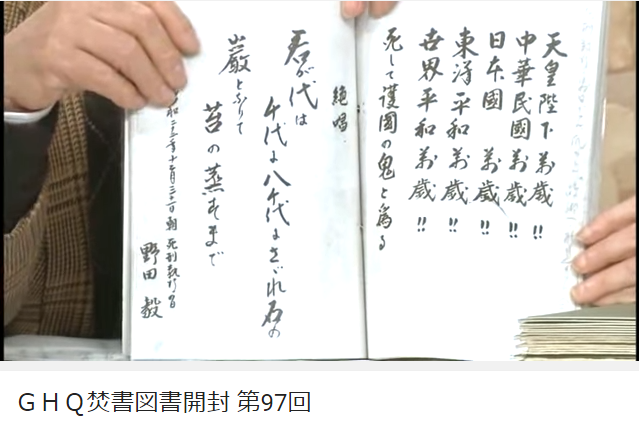 天皇陛下萬歳!!
中華民國萬歳!!
日本國萬歳!!
東洋平和萬歳!!
世界平和萬歳!!
死して護國の鬼と爲る
絶唱
君が代は
千代に八千代にさざれ石の
巌となりて
苔の蒸すまで
朝 死刑執行
野田 毅
ＧＨＱ焚書図書開封 第97回